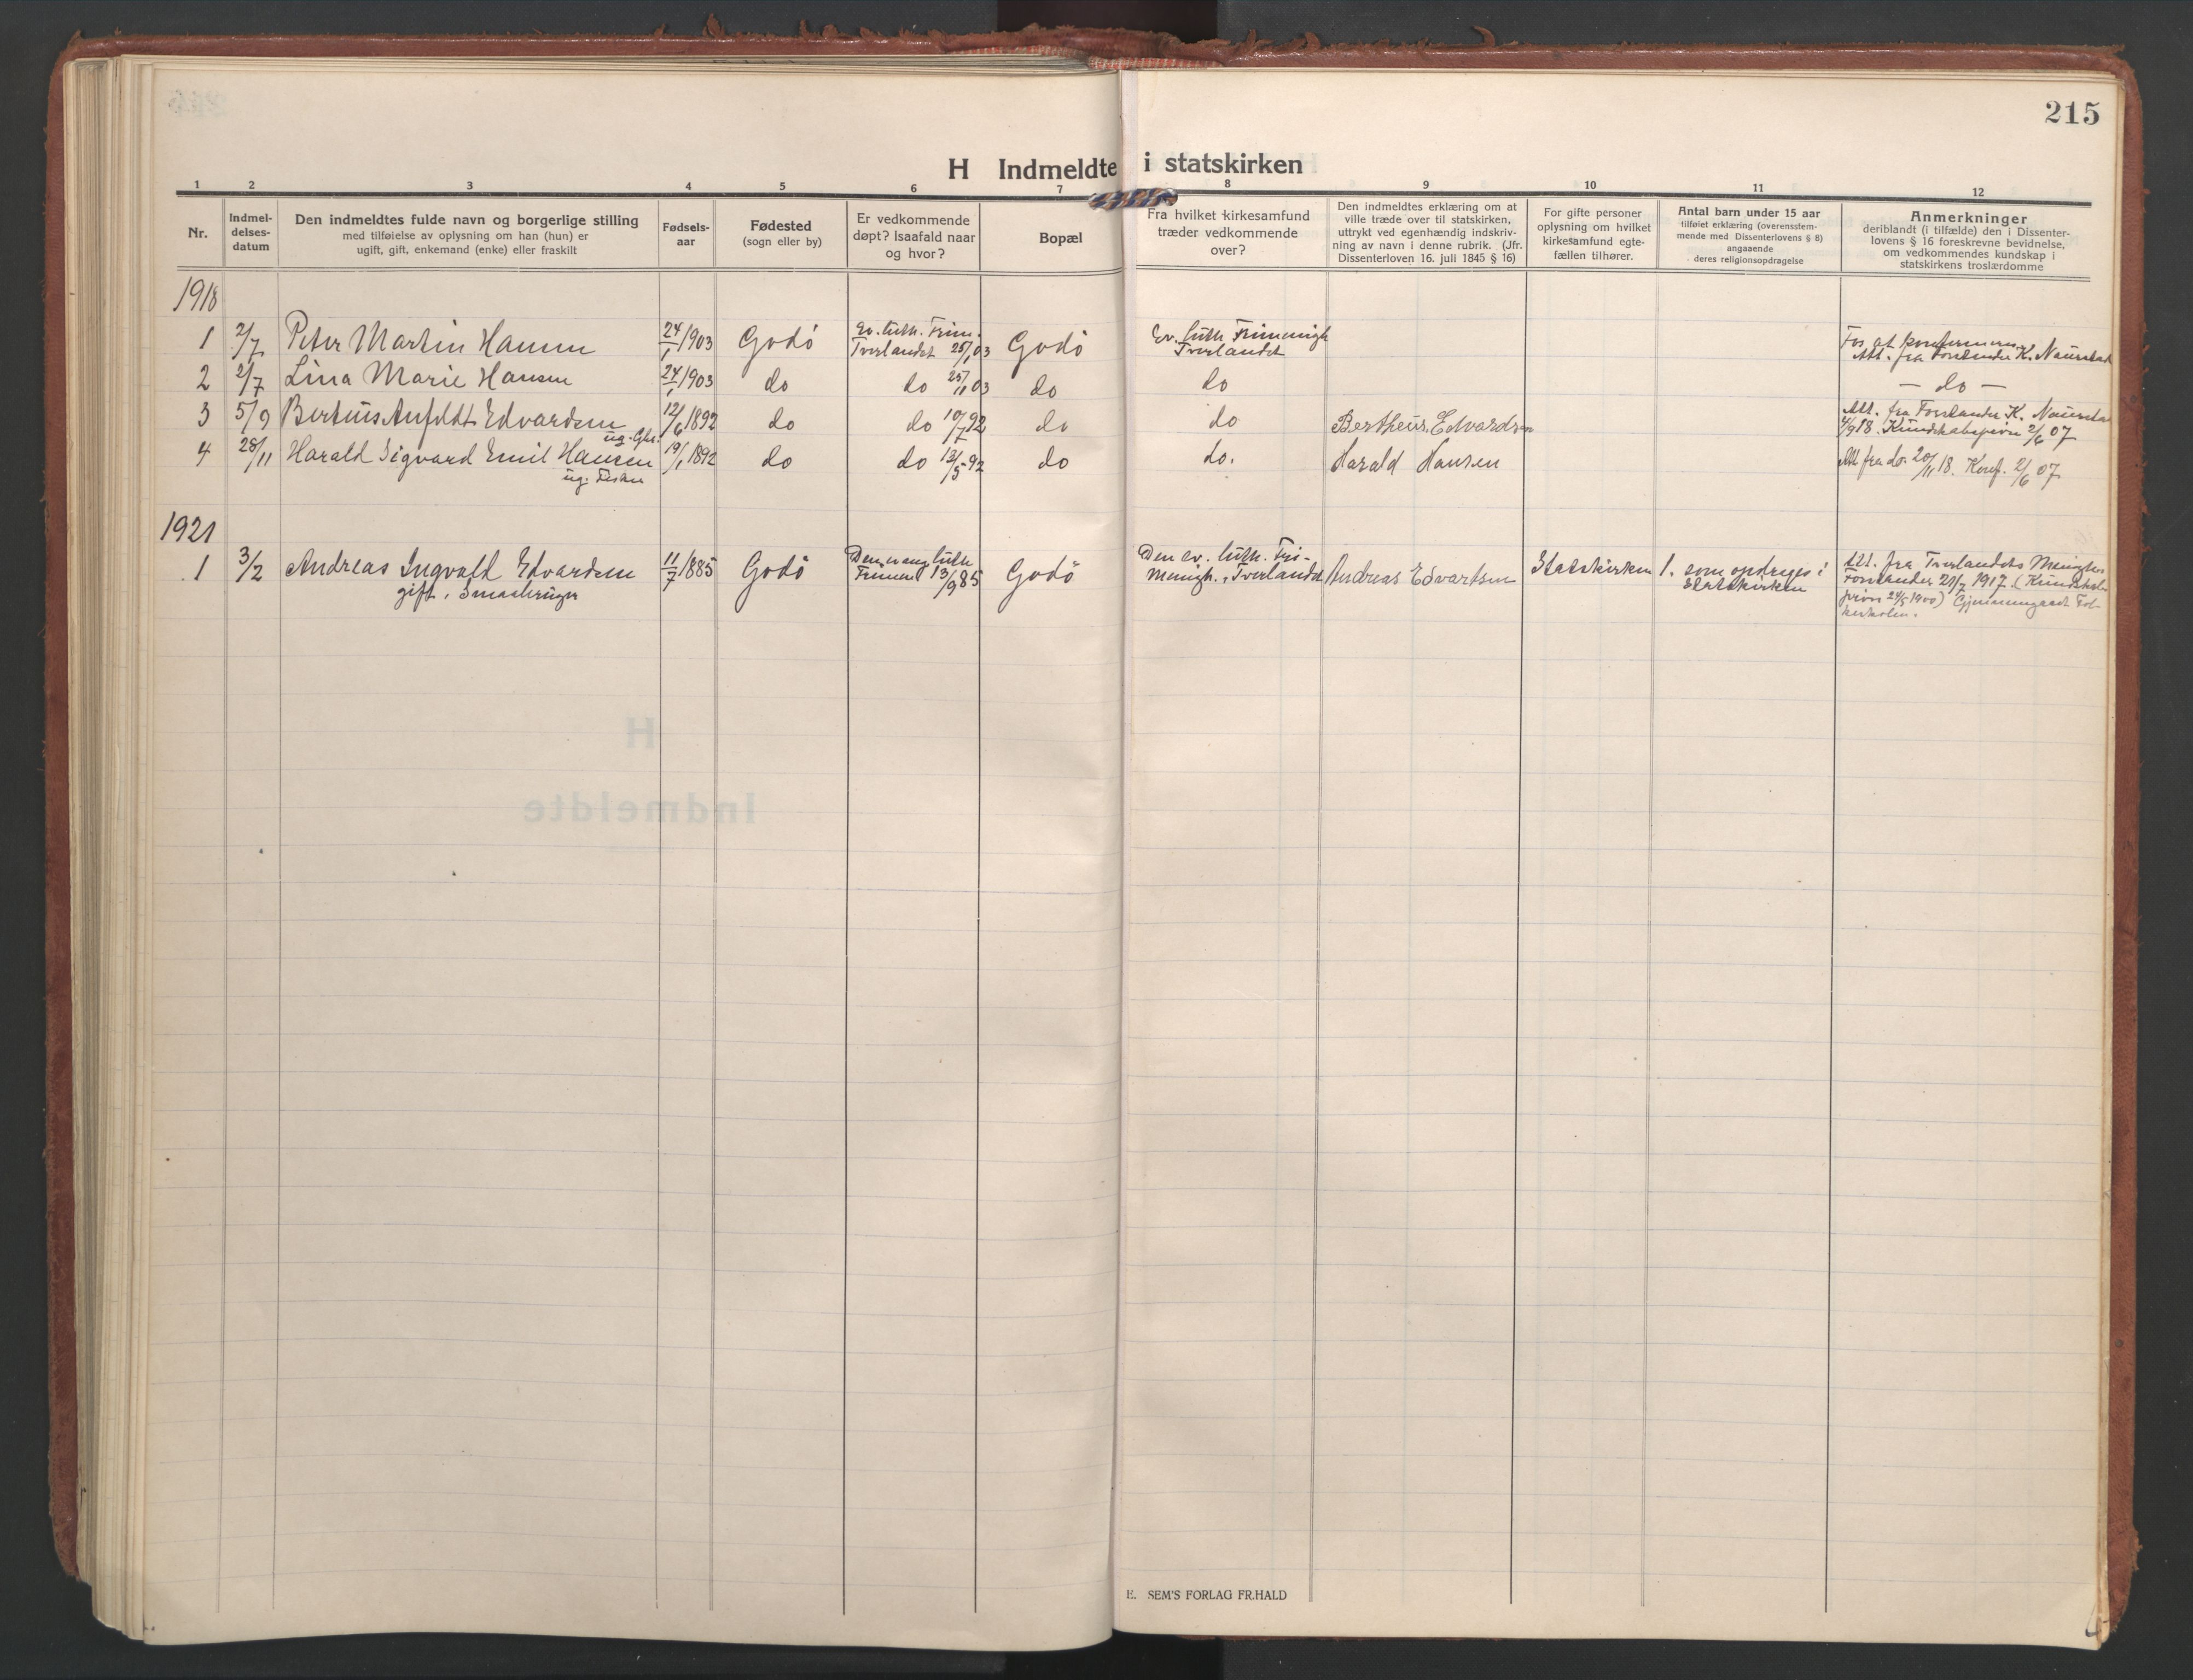 215
H Indmeldte i statskirken
1 2 3 4 5 6 7 8 9 10 11 12
Nr.
Indmel-
delses-
datum
Den indmeldtes fulde navn og borgerlige stilling
med tilføielse av oplysning om han (hun) er
ugift, gift, enkemand (enke) eller fraskilt
Fødsels-
aar
Fødested
(sogn eller by)
Er vedkommende
døpt? Isaafald naar
og hvor?
Bopæl
Fra hvilket kirkesamfund
træder vedkommende
over?
Den indmeldtes erklæring om at
ville træde over til statskirken,
uttrykt ved egenhændig indskriv-
ning av navn i denne rubrik. (Jfr.
Dissenterloven 16. juli 1845 § 16)
For gifte personer
oplysning om hvilket
kirkesamfund egte-
fællen tilhører.
Antal barn under 15 aar
tilføiet erklæring (overensstem-
mende med Dissenterlovens § 8)
angaaende
deres religionsopdragelse
Anmerkninger
deriblandt (i tilfælde) den i Dissenter-
lovens § 16 foreskrevne bevidnelse,
om vedkommendes kundskap i
statskirkens troslærdomme
1918
1 2/7 Peter Martin Hansen 24/1 1903 Godö Ev. luth. Frim. Tverlandet 25/1 03 Godö Ev. luth Frimenigh Tverlandet For at konfirmeres. Att. fra Forstander K. Naurstad
2 2/7 Lina Marie Hansen 24/1 1903 do do 25/11 03 do do — do —
3 5/9 Bertius Anfeldt Edvardsen 12/6 1892 do do 10/7 92 do do Bertheus Edvardsen Att. fra Forstander K. Naurstad
ug. 4/9 18. Kundskabsprøve 2/6 07
4 28/11 Harald Sigvard Emil Hansen 19/1 1892 do do 13/5 92 do do. Harald Hansen Att fra do 20/11 18. Konf. 2/6 07
ug. Fisker
1921
1 3/2 Andreas Ingvald Edvardsen 11/7 1885 Godö Den evang luth Frimen 13/9 85 Godö Den ev. luth. Fri- menigh., Tverlandet Andreas Edvartsen Statskirken 1. som opdrages i Statskirken Att. fra Tverlandets Menighs
gift, Smaabruger Forstander 21/7 1917. (Kundskabs-
prøve 24/5 1900)
H
Indmeldte
E. SEM'S FORLAG FR.HALD